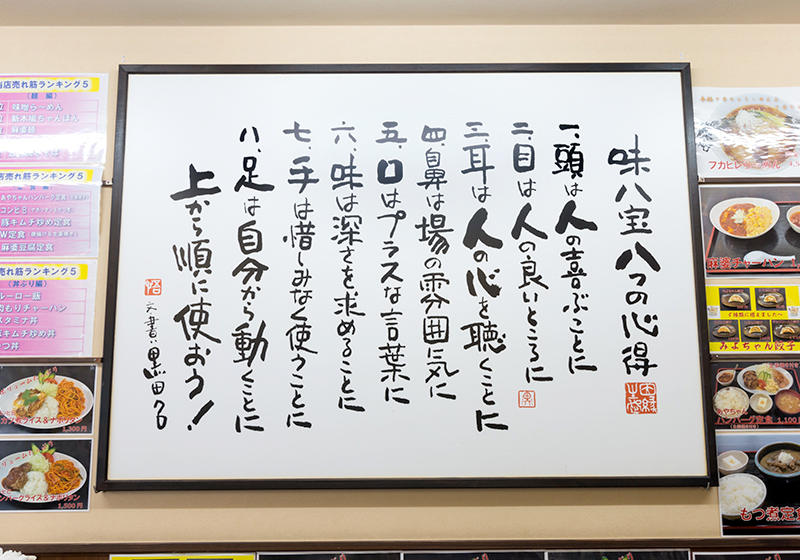 味八宝 八つの心得
一、頭は人の喜ぶことに
二、目は人の良いところに
三、耳は人の心を聴くことに
四、鼻は場の雰囲気に
五、口はプラスな言葉に
六、味は深さを求めることに
七、手は惜しみなく使うことに
八、足は自分から動くことに
上から順に使おう!
店売れ筋ランキング5
(麺編)
味噌らーめん
新木場ちゃんぽん
麻婆麺
店売れ筋ランキング5
豚キムチ炒め定食
W定食
麻婆豆腐定食
売れ筋ランキング5
(丼ぶり編)
ルーロー飯
肉もりチャーハン
スタミナ丼
豚キムチ炒め丼
かつ丼
ライス&ナポリタン
1,300円
ハンバーグライス&ナポリタン
フカヒレらーめん
麻婆チャーハン
みよちゃん餃子
あやちゃん
ハンバーグ定食
1,100
もつ煮定食